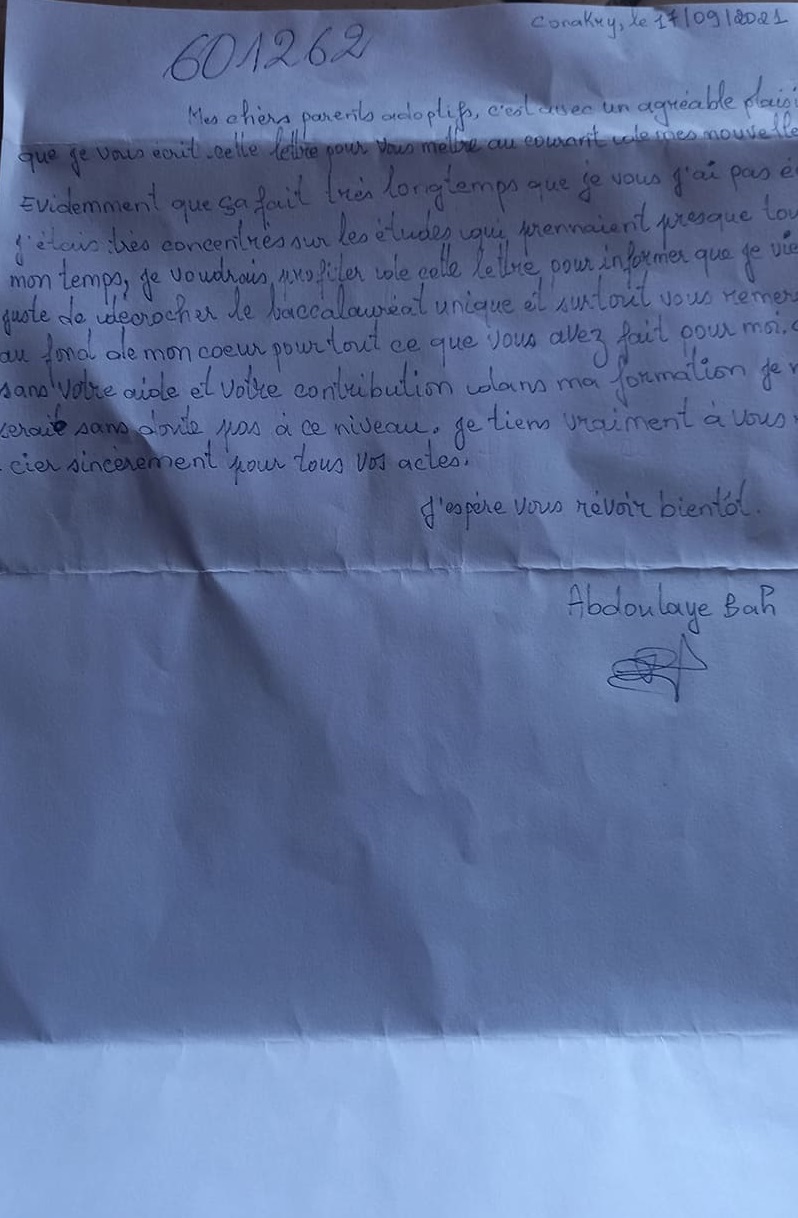 Conakry, le 17/09/2021
601262
Mes chèrs parents adoptifs, c'est avec un agréable plaisi
que je vous ecrit cette lettre pour vous mettre au courant de mes nouvelle
Evidemment que sa fait très longtemps que je vous j'ai pas é
j'étais très concentrés sur les études qui prennaient presque tou
mon temps, je voudrais profiter de cette lettre pour informer que je vie
juste de décrocher le baccalauréat unique et surtout vous remer
au fond de mon coeur pour tout ce que vous avez fait pour moi.
sans votre aide et votre contribution dans ma formation je n
serait sans doute pas à ce niveau. je tiens vraiment à vous
cier sincèrement pour tous vos actes.
J'espère vous révoir bientôt.
Abdoulaye Bah